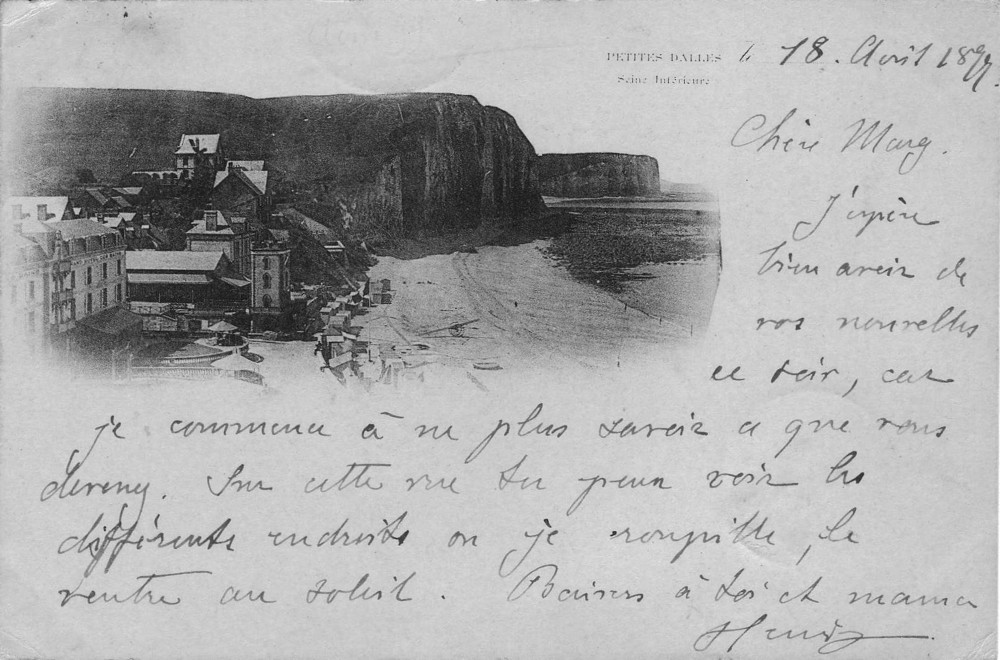 PETITES DALLES le 18. Avril 1899.
Seine Inférieure
Chère Marg.
J'espère
bien avoir de
vos nouvelles
ce soir, car
je commence à ne plus savoir ce que vous
devenez. Sur cette vue tu peux voir les
différents endroits où je roupille, le
ventre au soleil. Baisers à toi et maman
Henri